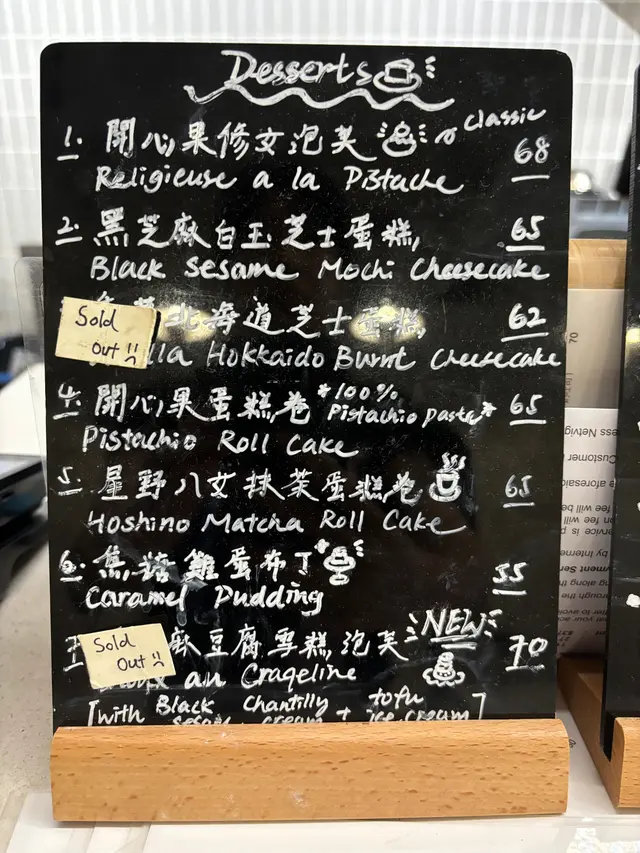 Desserts
1. 開心果修女泡芙 classic 68
Religieuse a la Pistache
2. 黑芝麻白玉芝士蛋糕, 65
Black Sesame Mochi Cheesecake
Sold
out !!
北海道芝士蛋糕, 62
Hokkaido Burnt Cheesecake
4. 開心果蛋糕卷 *100% Pistachio paste* 65
Pistachio Roll Cake
5. 星野八女抹茶蛋糕卷 65
Hoshino Matcha Roll Cake
6. 焦糖雞蛋布丁 55
Caramel Pudding
Sold
Out !!
麻豆腐雪糕泡芙 NEW 70
au Craqeline
[with Black Chantilly tofu
cream + ice cream]
ess Netvig
Customer